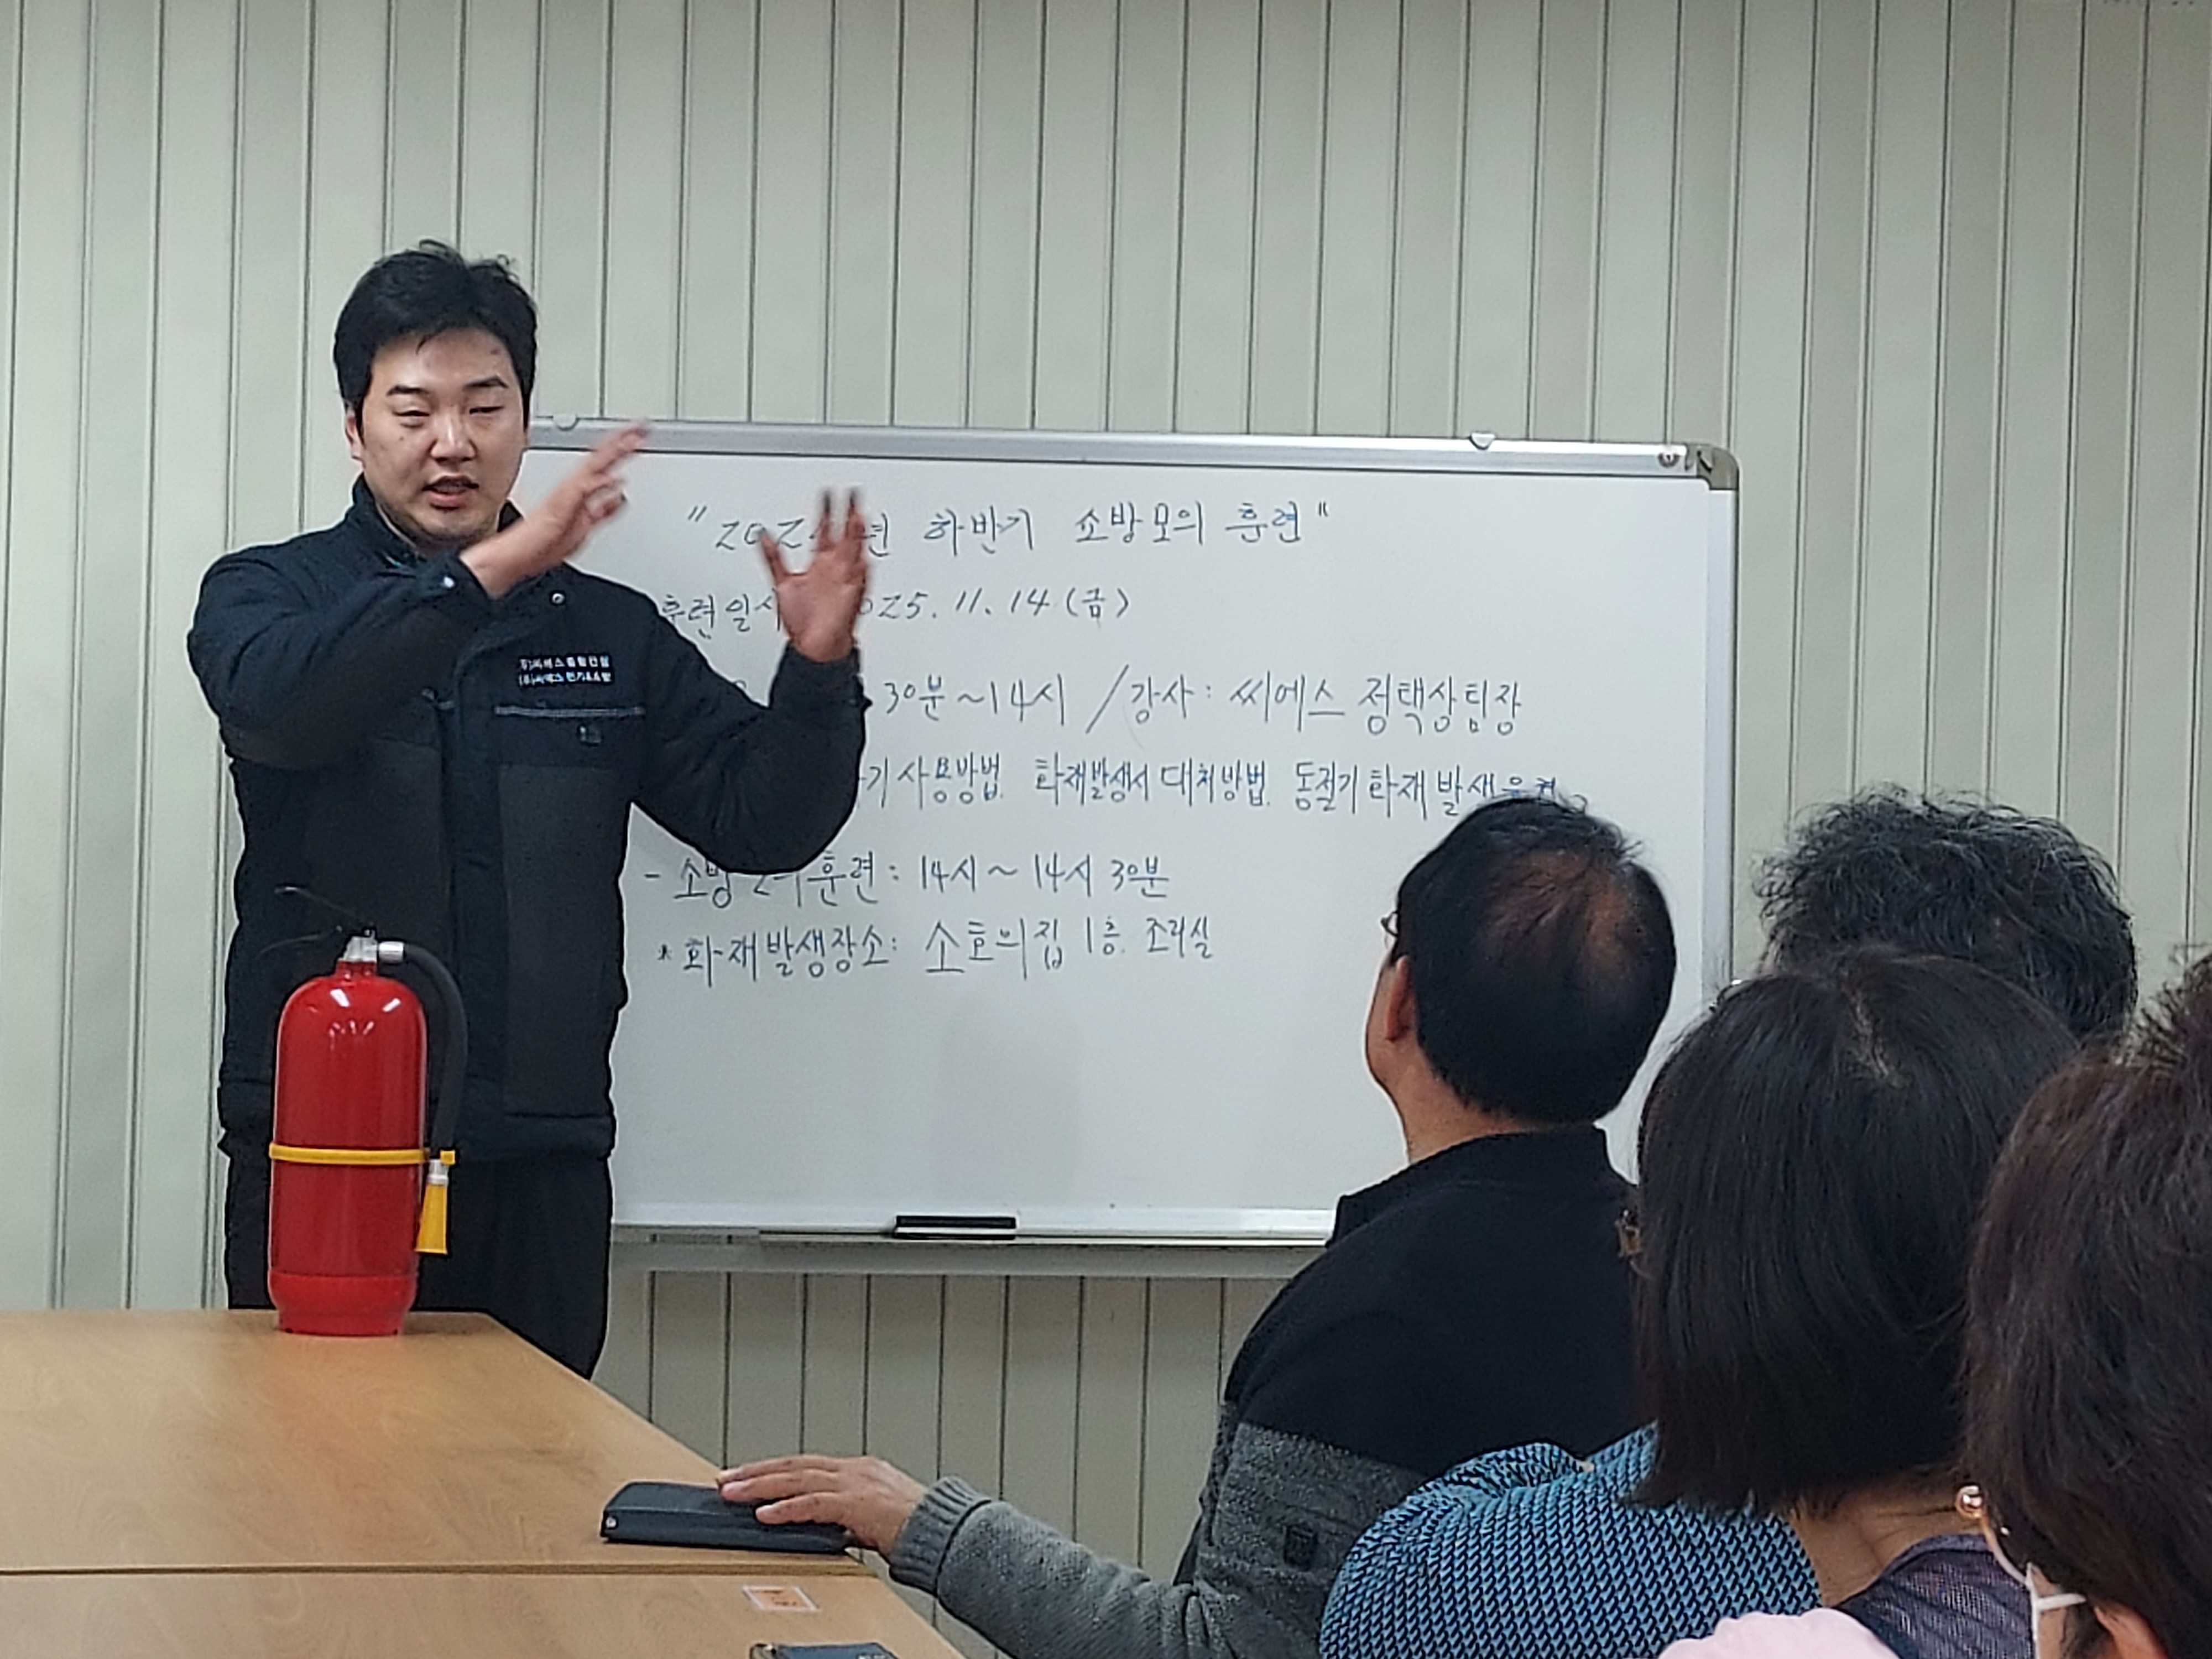 "202 년 하반기 소방모의 훈련"
훈련일시 2025. 11. 14 (금)
30분 ~ 14시 / 강사 : 씨에스 정택상팀장
기 사용방법. 화재발생시 대처방법. 동절기 화재 발생
- 소방 훈련 : 14시 ~ 14시 30분
* 화재발생장소 : 소호의집 1층. 조리실